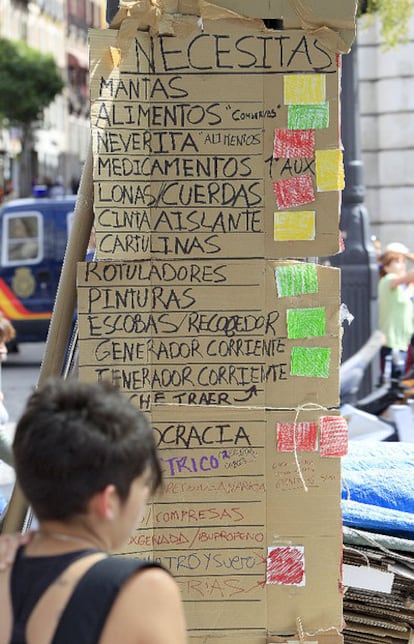 NECESITAS
MANTAS
ALIMENTOS "CONSERVAS"
NEVERITA "ALIMENTOS
MEDICAMENTOS 1ºAUX
LONAS/CUERDAS
CINTA AISLANTE
CARTULINAS
ROTULADORES
PINTURAS
ESCOBAS/RECOGEDOR
GENERADOR CORRIENTE
GENERADOR CORRIENTE
CHE TRAER
OCRACIA
TRICO
/COMPRESAS
XIGENADA/IBUPROFENO
TRO Y SUERO
ERIAS